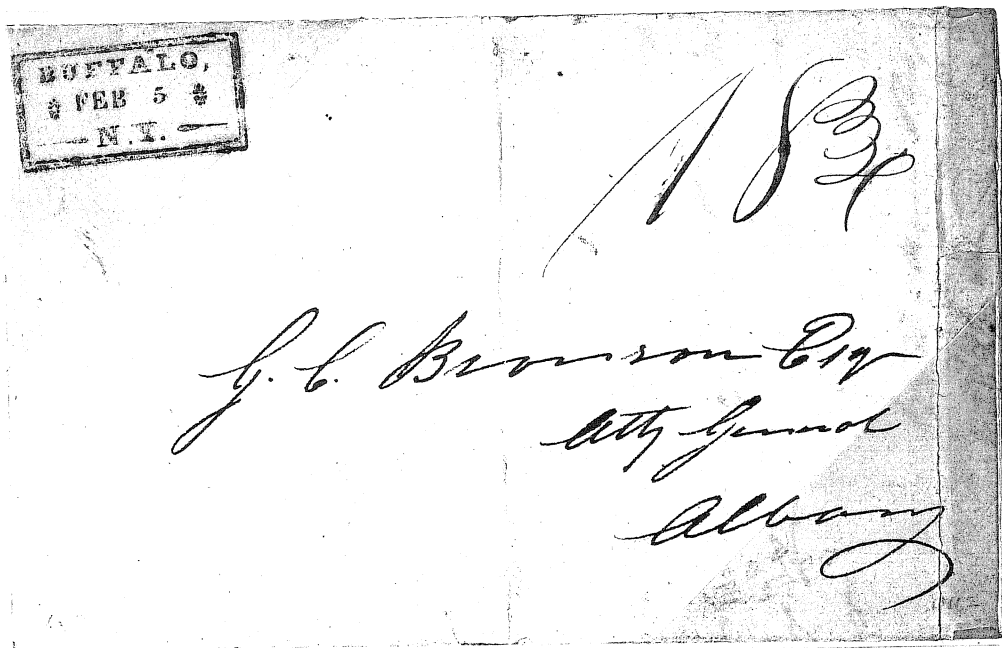 BUFFALO,
FEB 5
N.Y.
18¾
G. C. Bronson Esqr
Atty General
Albany